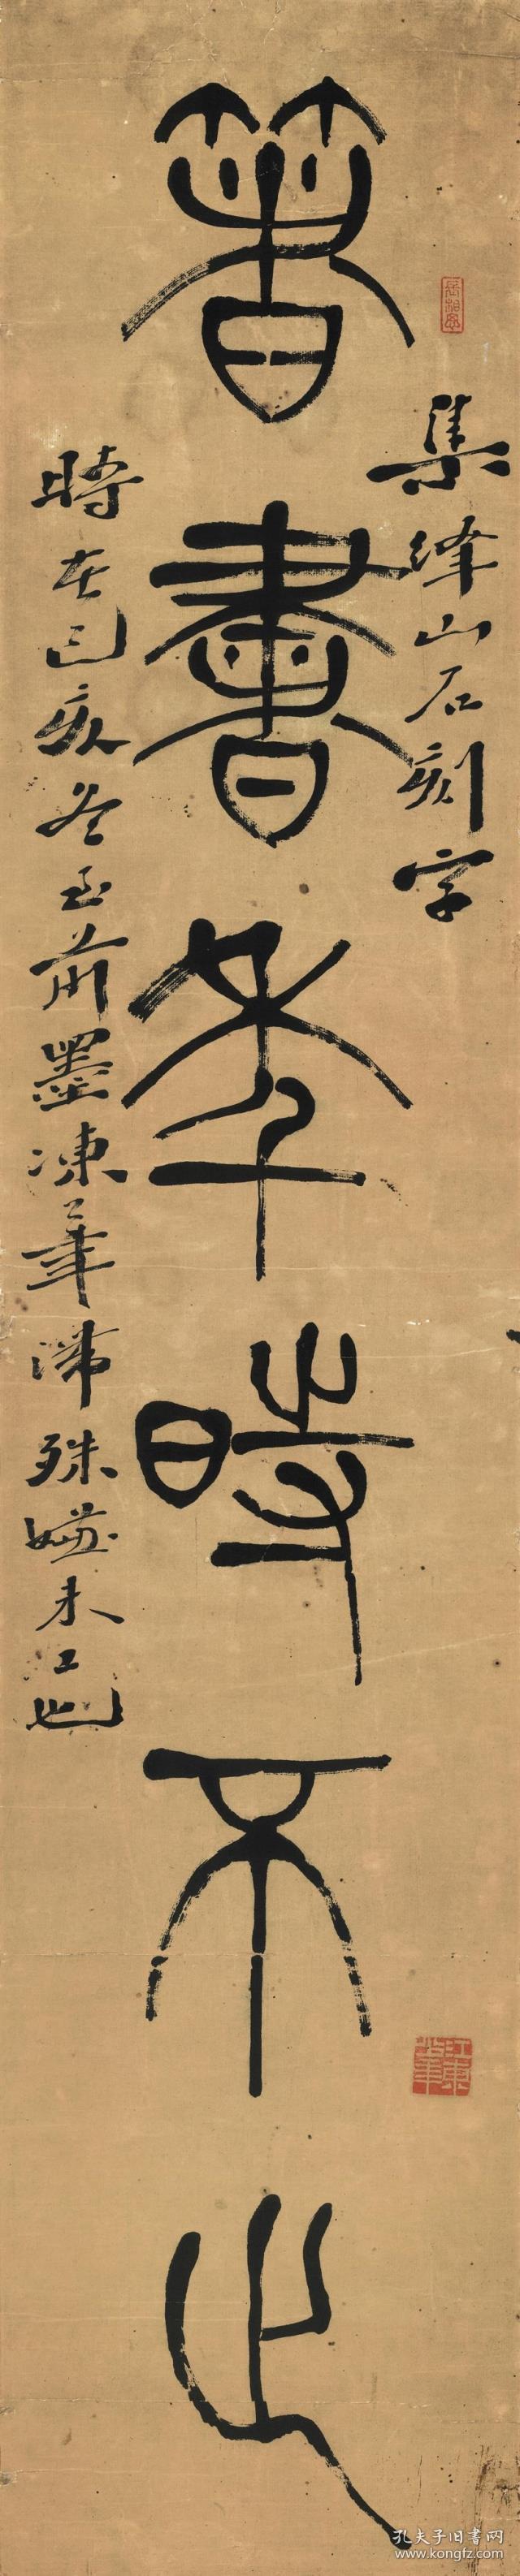 集绎山石刻字
箸書孝時不止
時在己亥冬至前墨凍筆滯殊嫌未工也
孔夫子旧书网
www.kongfz.com